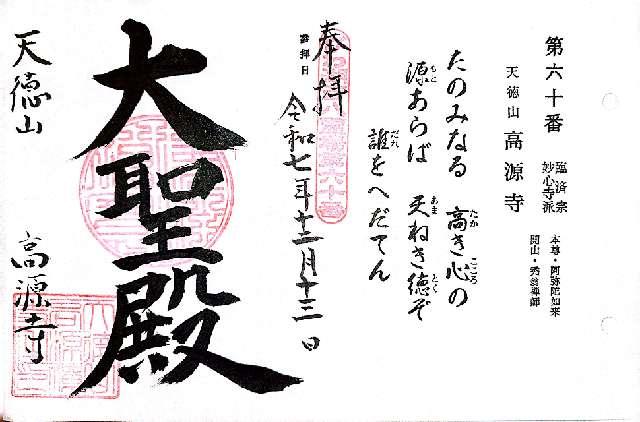 第六十番
臨済宗
妙心寺派
天徳山 高源寺
本尊・阿弥陀如来
開山・秀翁禅師
たのみなる 高き心の
源あらば 天ねき徳ぞ
誰をへだてん
奉拝
参拝日
令和七年十二月十三日
大聖殿
天徳山 高源寺